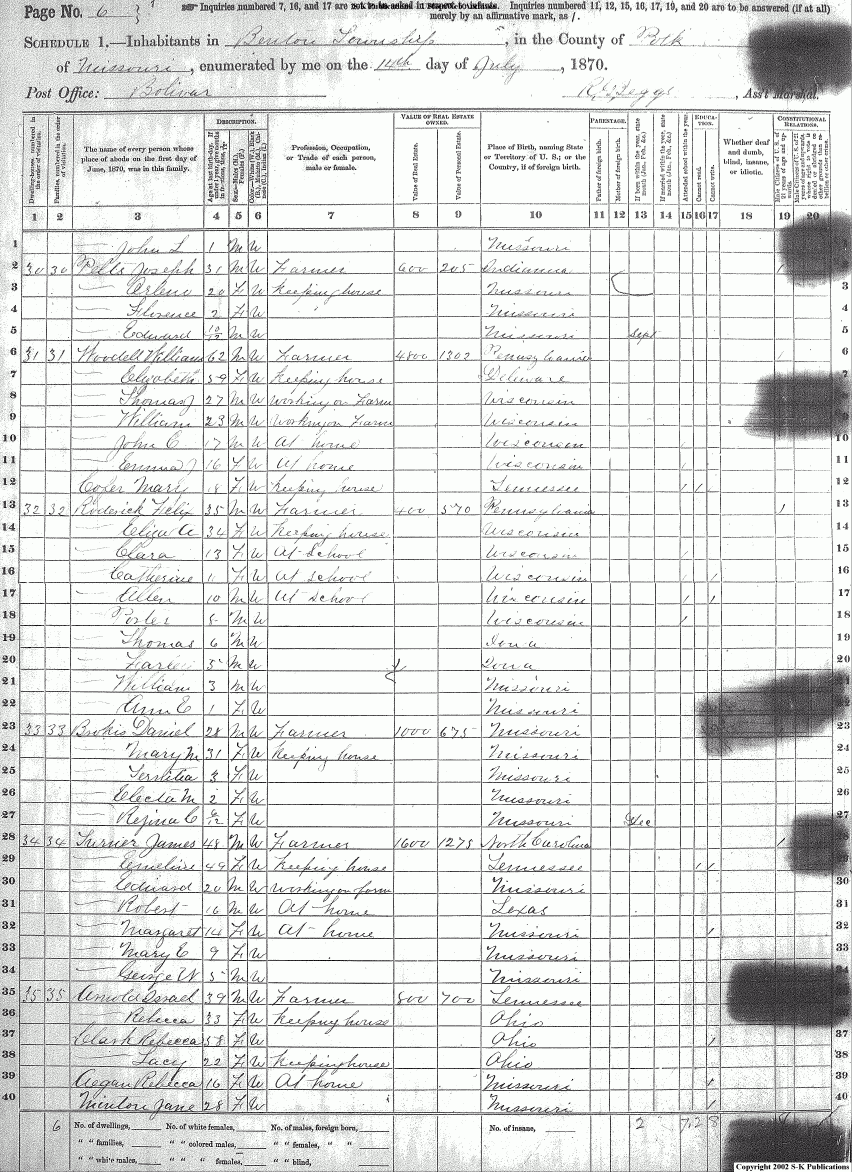 Page No. 6
Inquiries numbered 7, 16, and 17 are not to be asked in respect to infants. Inquiries numbered 11, 12, 15, 16, 17, 19, and 20 are to be answered (if at all)
merely by an affirmative mark, as /.
SCHEDULE 1.—Inhabitants in Benton Township, in the County of Polk
of Missouri, enumerated by me on the 14th day of July, 1870.
Post Office: Bolivar , Ass't Marshal.
DESCRIPTION. VALUE OF REAL ESTATE OWNED. PARENTAGE. EDUCATION. CONSTITUTIONAL RELATIONS.
Dwelling-houses, numbered in the order of visitation. Families, numbered in the order of visitation. The name of every person whose place of abode on the first day of June, 1870, was in this family. Profession, Occupation, or Trade of each person, male or female. Value of Real Estate. Value of Personal Estate. Place of Birth, naming State or Territory of U. S.; or the Country, if of foreign birth. Father of foreign birth. Mother of foreign birth. Attended school within the year. Cannot read. Cannot write. Whether deaf and dumb, blind, insane, or idiotic.
1 2 3 4 5 6 7 8 9 10 11 12 13 14 15 16 17 18 19 20
1 John L 1 M W Missouri
2 30 30 Pelts Joseph 31 M W Farmer 600 205 Indianna 2
3 Arlena 20 F W Keeping house Missouri 3
4 Florence 2 F W Missouri 4
5 Edward 10/12 M W Missouri Sept 5
6 31 31 Woodell William 62 M W Farmer 4800 1302 Pennsylvania 6
7 Elizabeth 59 F W Keeping house Delaware 7
8 Thomas J 27 M W Working on Farm Wisconsin
9 William 23 M W Working on Farm Wisconsin
10 John C 17 M W At home Wisconsin / 10
11 Emma J 16 F W At home Wisconsin / 11
12 Cofer Mary 18 F W Keeping house Tennessee / / 12
13 32 32 Roderick Felix 35 M W Farmer 400 570 Pennsylvania / 13
14 Eliza A 34 F W Keeping house Wisconsin 14
15 Clara 13 F W At School Wisconsin / 15
16 Catherine F W At school Wisconsin / / 16
17 Allen 10 M W At school Wisconsin / / 17
18 Porter M W Wisconsin / 18
19 Thomas 6 M W Iowa 19
20 5 M W Iowa 20
21 William 3 M W Missouri 21
22 Ann E 1 F W Missouri 22
23 33 33 Daniel 28 M W Farmer 1000 675 Missouri 23
24 Mary M 31 F W Keeping house Missouri 24
25 3 F W Missouri 25
26 Electa M 2 F W Missouri 26
27 Rejina C 6/12 F W Missouri Dec 27
28 34 34 Turner James 48 M W Farmer 1600 1275 North Carolina / 28
29 Emeline 49 F W Keeping house Tennessee / / 29
30 Edward 20 M W Working on farm Missouri 30
31 Robert 16 M W At home Texas 31
32 Margaret 14 F W At home Missouri / 32
33 Mary E 9 F W Missouri 33
34 George W 5 M W Missouri
35 35 35 Arnold Israel 39 M W Farmer 800 700 Tennessee
36 Rebecca 33 F W Keeping house Ohio 36
37 Clark Rebecca 58 F W Ohio / 37
38 Lacy 22 F W Keeping house Ohio 38
39 Rebecca 16 F W At home Missouri / 39
40 Minton Jane 28 F W Missouri / 40
6 No. of dwellings, No. of white females, No. of males, foreign born, No. of insane, 2 7 2 8
" " families, " " colored males, " " females, " "
" " white males, " " " females, " " blind,
Copyright 2002 S-K Publications